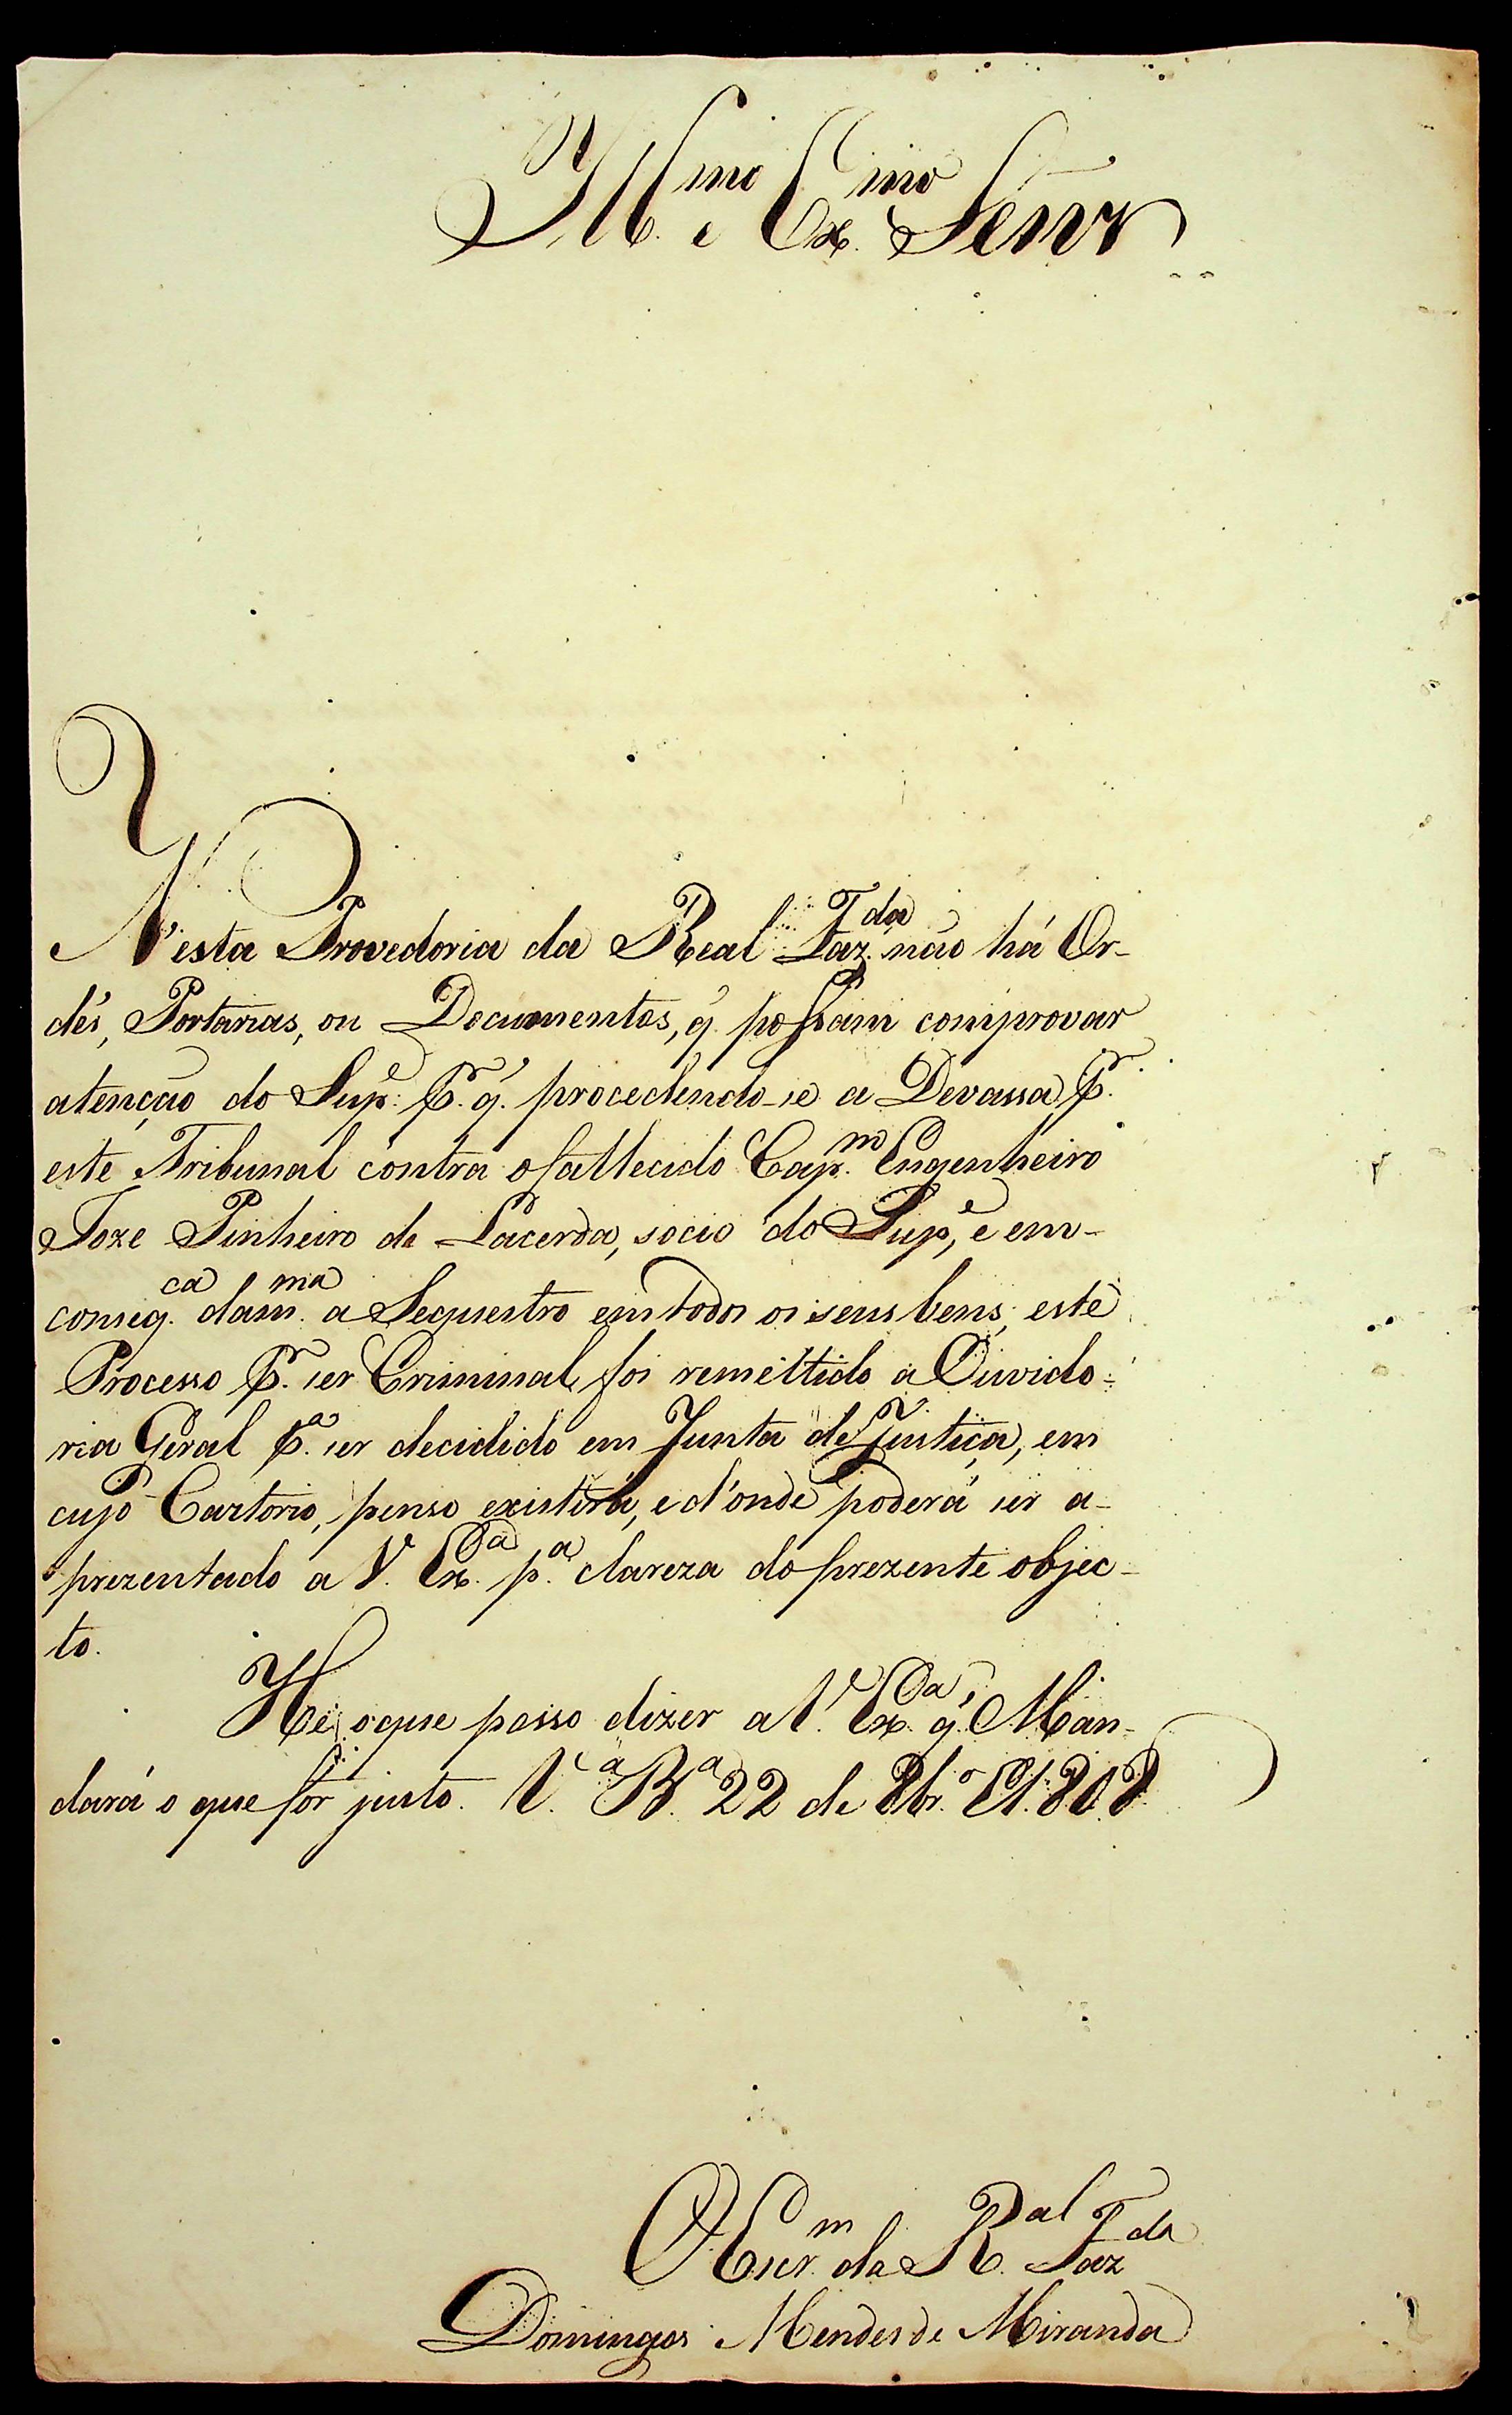 Ill.mo e Ex.mo Senr
N'esta Provedoria da Real Faz.da não há Or-
dẽs, Portarias, ou Documentos, q̃ possam comprovar
atenção do Sup.e P.r q̃. procedendo-se a Devassa P.r
este Tribunal contra o fallecido Cap.m Engenheiro
Joze Pinheiro de Lacerda, socio do Sup.e, e em-
conseq.ca dam.ma a Sequestro em todos os seus bens; este
Processo P.r ser Criminal, foi remettido a Ouvido-
ria Geral P.a ser decidido em Junta de Justiça, em
cujo Cartorio, penso existirá, e d'onde poderá ser a-
prezentado a V. Ex.a p.a clareza do prezente objec-
to.
He o que posso dizer a V. Ex.a q̃. Man-
dará o que for justo. V.a B.a 22 de 8br.o 1808
O Escr.m da R.al Faz.da
Domingos Mendes de Miranda